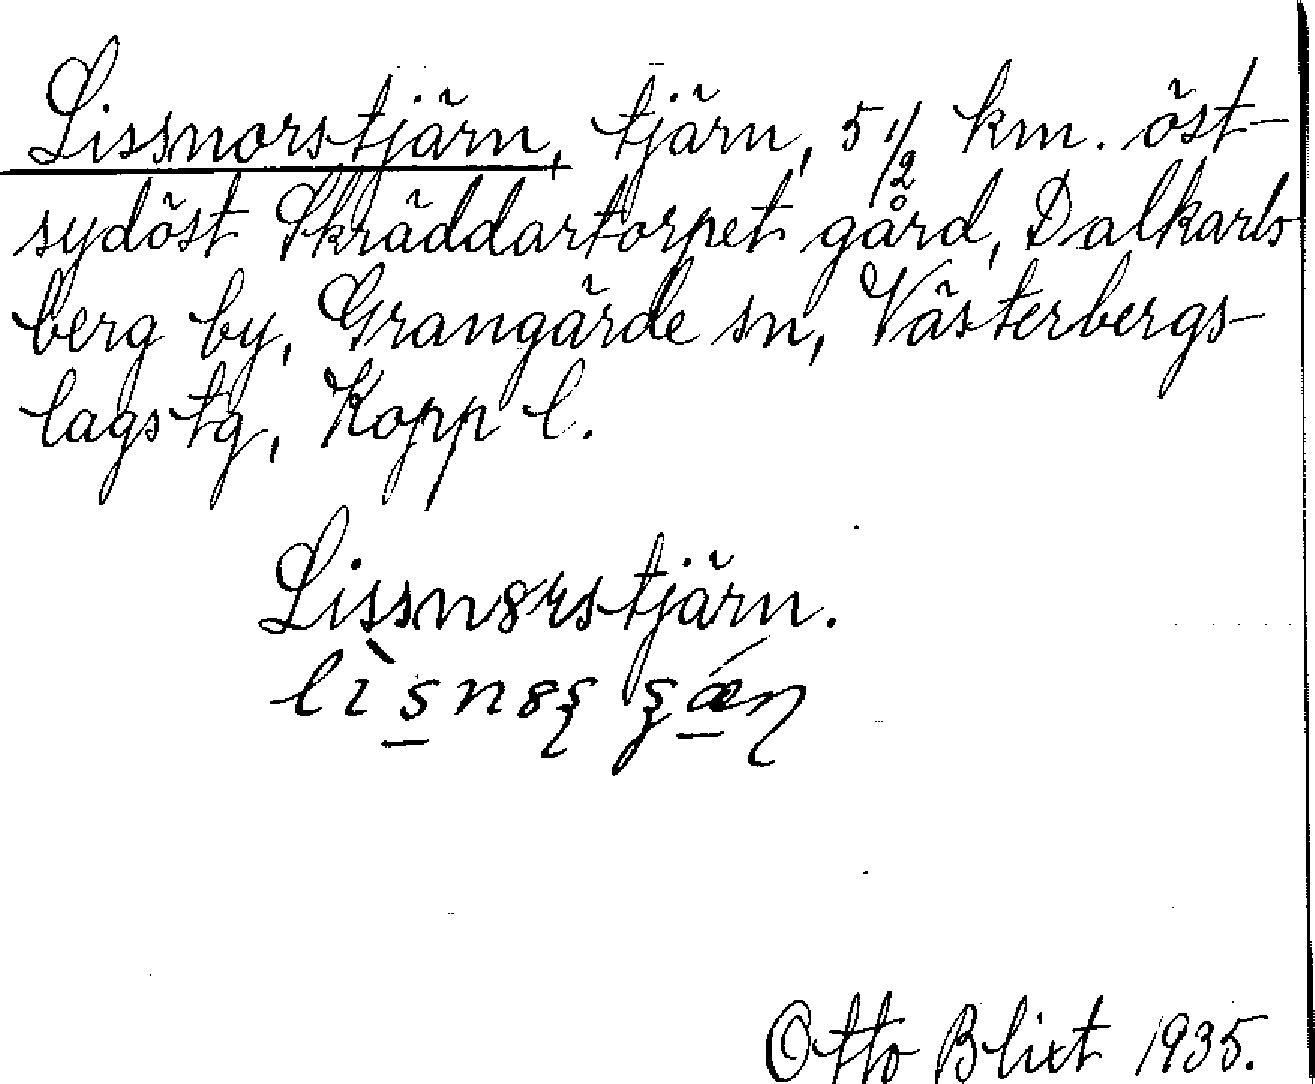 Lissnorstjärn, tjärn, 5 1/2 km. öst-
sydöst Skräddartorpet gård, Dalkarls
berg by, Grangärde sn, Västerbergs-
lags tg, Kopp l.
Lissn8rstjärn.
Otto Blixt 1935.